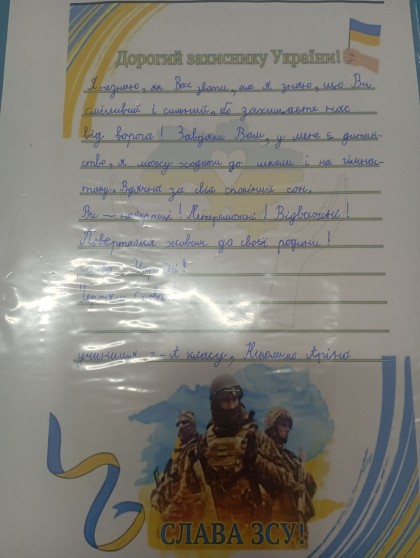 Дорогий захиснику України!
Я незнаю, як Вас звати, але я знаю, що Ви
сміливий і сильний, бо захищаєте нас
від ворога! Завдяки Вам, у мене є дитин-
ство, я можу ходити до школи і на гімнас-
тику. Вдячна за свій спокійний сон.
Ви — найкращі! Непереможні! Відважні!
Повертайся живим до своєї родини!
Україні!
учениця -А класу, Аріна
СЛАВА ЗСУ!